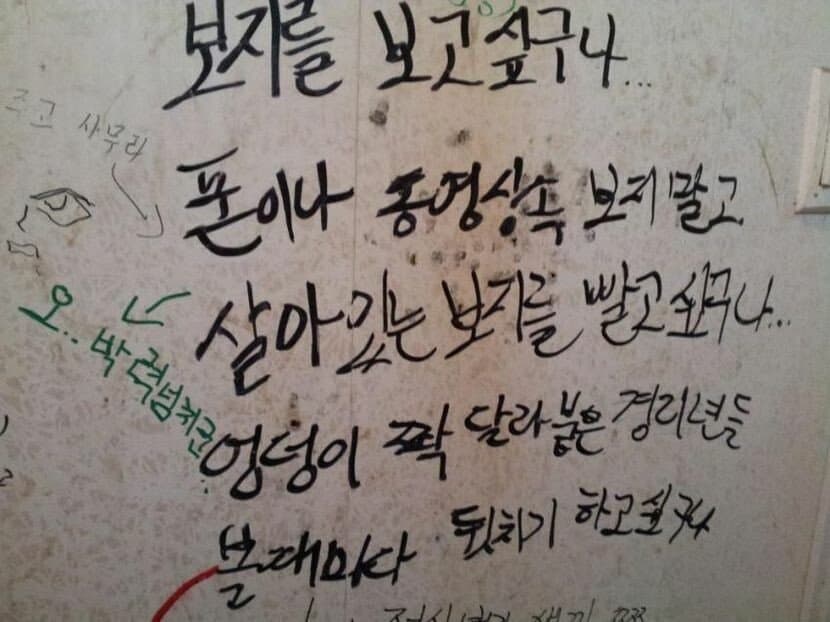 보지를 보고싶구나...
폰이나 동영상속 보지말고
살아있는 보지를 빨고싶구나...
엉덩이 짝 달라붙은 경리년들
볼때마다 뒷치기 하고싶구나
오.. 박력넘치군..